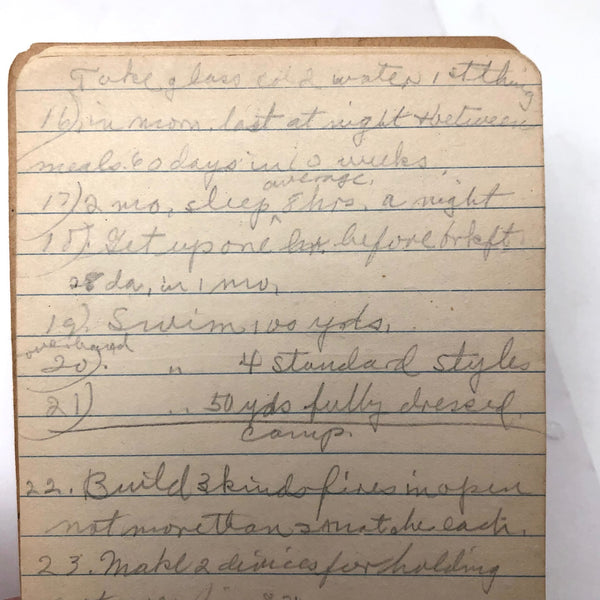 Take glass cd 2 water 1st thing
16) in morn, last at night & between
meals. 60 days in 10 weeks.
average
17) 2 mo, sleep ^ 8 hrs. a night
18). Get up one hr. before brkft.
28 da, in 1 mo,
19). Swim 100 yds.
overhand
20). " 4 standard styles
21) " 50 yds fully dressed.
Camp.
22. Build 3 kinds fires in open
not more than 2 matche each.
23. Make 2 devices for holding